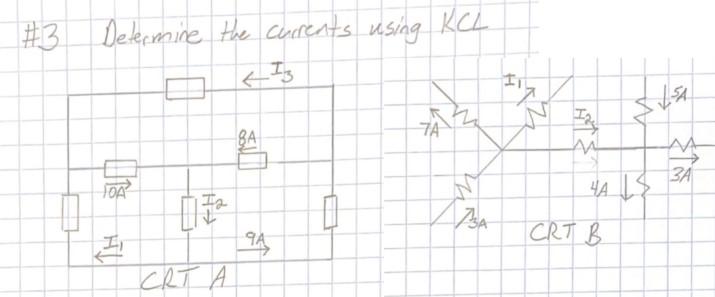 #3 Determine the currents using KCL
I3
8A
10A
I2
I1
9A
CRT A
I1
7A
I2
5A
3A
4A
3A
CRT B